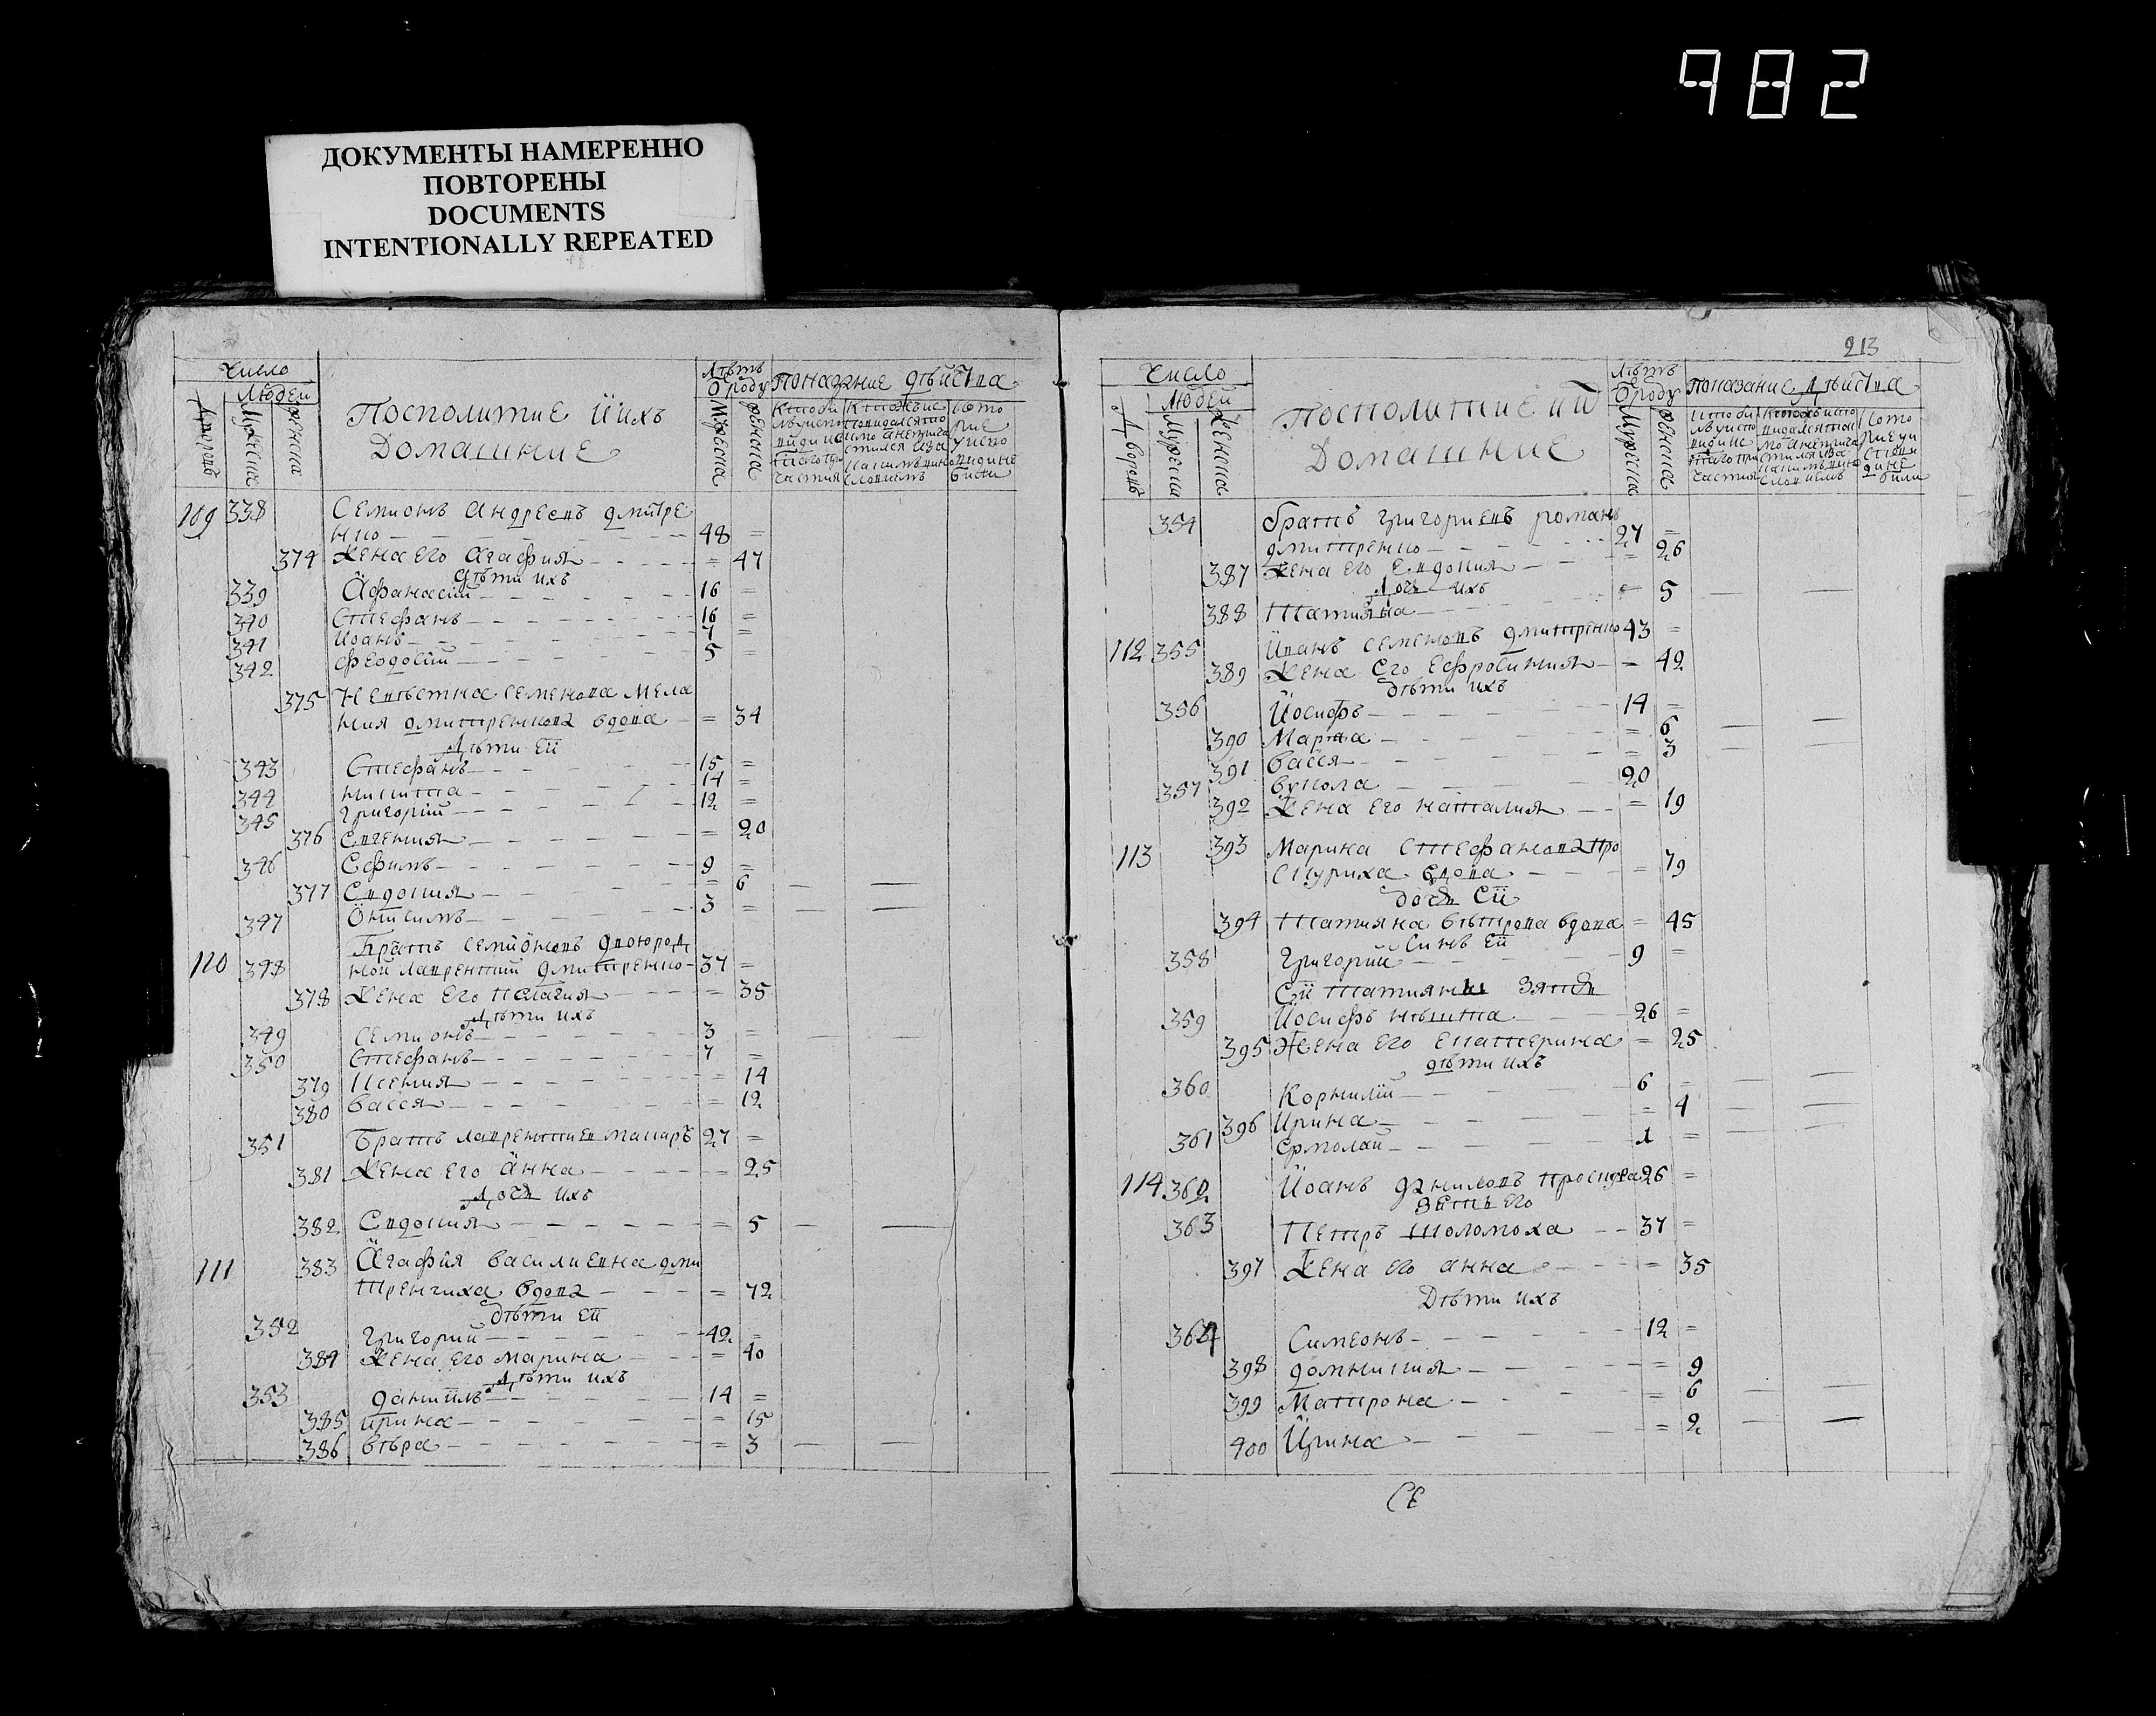 982
ДОКУМЕНТЫ НАМЕРЕННО
ПОВТОРЕНЫ
DOCUMENTS
INTENTIONALLY REPEATED
Число
Людей
Мужеска
Женска
Посполитие й ихъ
Домашние
Лѣтъ
Ѿ роду
Мужеска
Женска
Показание дѣйства
109 338 Семионъ Андреевъ дмитре
нко 48 =
374 Жена его Агафия = 47
дѣти ихъ
339 Афанасий 16 =
340 Стефанъ 16 =
341 Иоанъ 7 =
342 феодосий 5 =
375 Невѣстка семенова Мела
ния дмитренкова вдова = 34
Дѣти еи
343 Стефанъ 15 =
344 никита 14 =
345 григорий 12 =
376 Евгения = 20
346 Ефимъ 9 =
377 Евдокия = 6
347 Онисимъ 3 =
Братъ семионовъ двоюрод
110 348 ной лаврентий дмитренко 37 =
378 Жена его палагия = 35
Дѣти ихъ
349 Семионъ 3 =
350 Стефанъ 7 =
379 Ксения = 14
380 васся = 12
351 Братъ лаврентиев макаръ 27 =
381 Жена его Анна = 25
Дочъ ихъ
382 Евдокия = 5
111 383 Агафия василиевна дми
тренчиха вдова = 72
дѣти еи
352 григорий 42 =
384 Жена его марина = 40
Дѣти ихъ
353 даниилъ 14 =
385 ирина = 15
386 вѣра = 3
213
Число
Людей
Дворовъ
Мужеска
Женска
Домашние
Лѣтъ
Ѿ роду
Мужеска
Женска
Показание дѣйства
354 братъ григориевъ романъ
дмитренко 27 =
387 Жена его Евдокия = 26
Дочъ ихъ
388 Татияна = 5
112 355 Иванъ семеновъ дмитренко 43 =
389 Жена его ефросиния = 42
дѣти ихъ
356 Иосифъ 14 =
390 Марѳа = 6
391 васся = 3
357 вукола 20
392 Жена его наталия = 19
113 393 Марина стефанова про
скуриха вдова = 79
дочъ еи
394 Татияна вѣтрова вдова = 45
Синъ еи
358 Григорий 9 =
Еи татияны зять
359 Иосифъ 26 =
395 Жена его екатерина = 25
дѣти ихъ
360 Корнилий 6 =
396 Ирина = 4
361 ермолай 1 =
114 362 Иоанъ даниловъ проскура 26 =
зять его
363 Петръ шоломоха 37 =
397 Жена его анна = 35
Дѣти ихъ
364 Симеонъ 12 =
398 домникия = 9
399 Матрона = 6
400 Ирина = 2